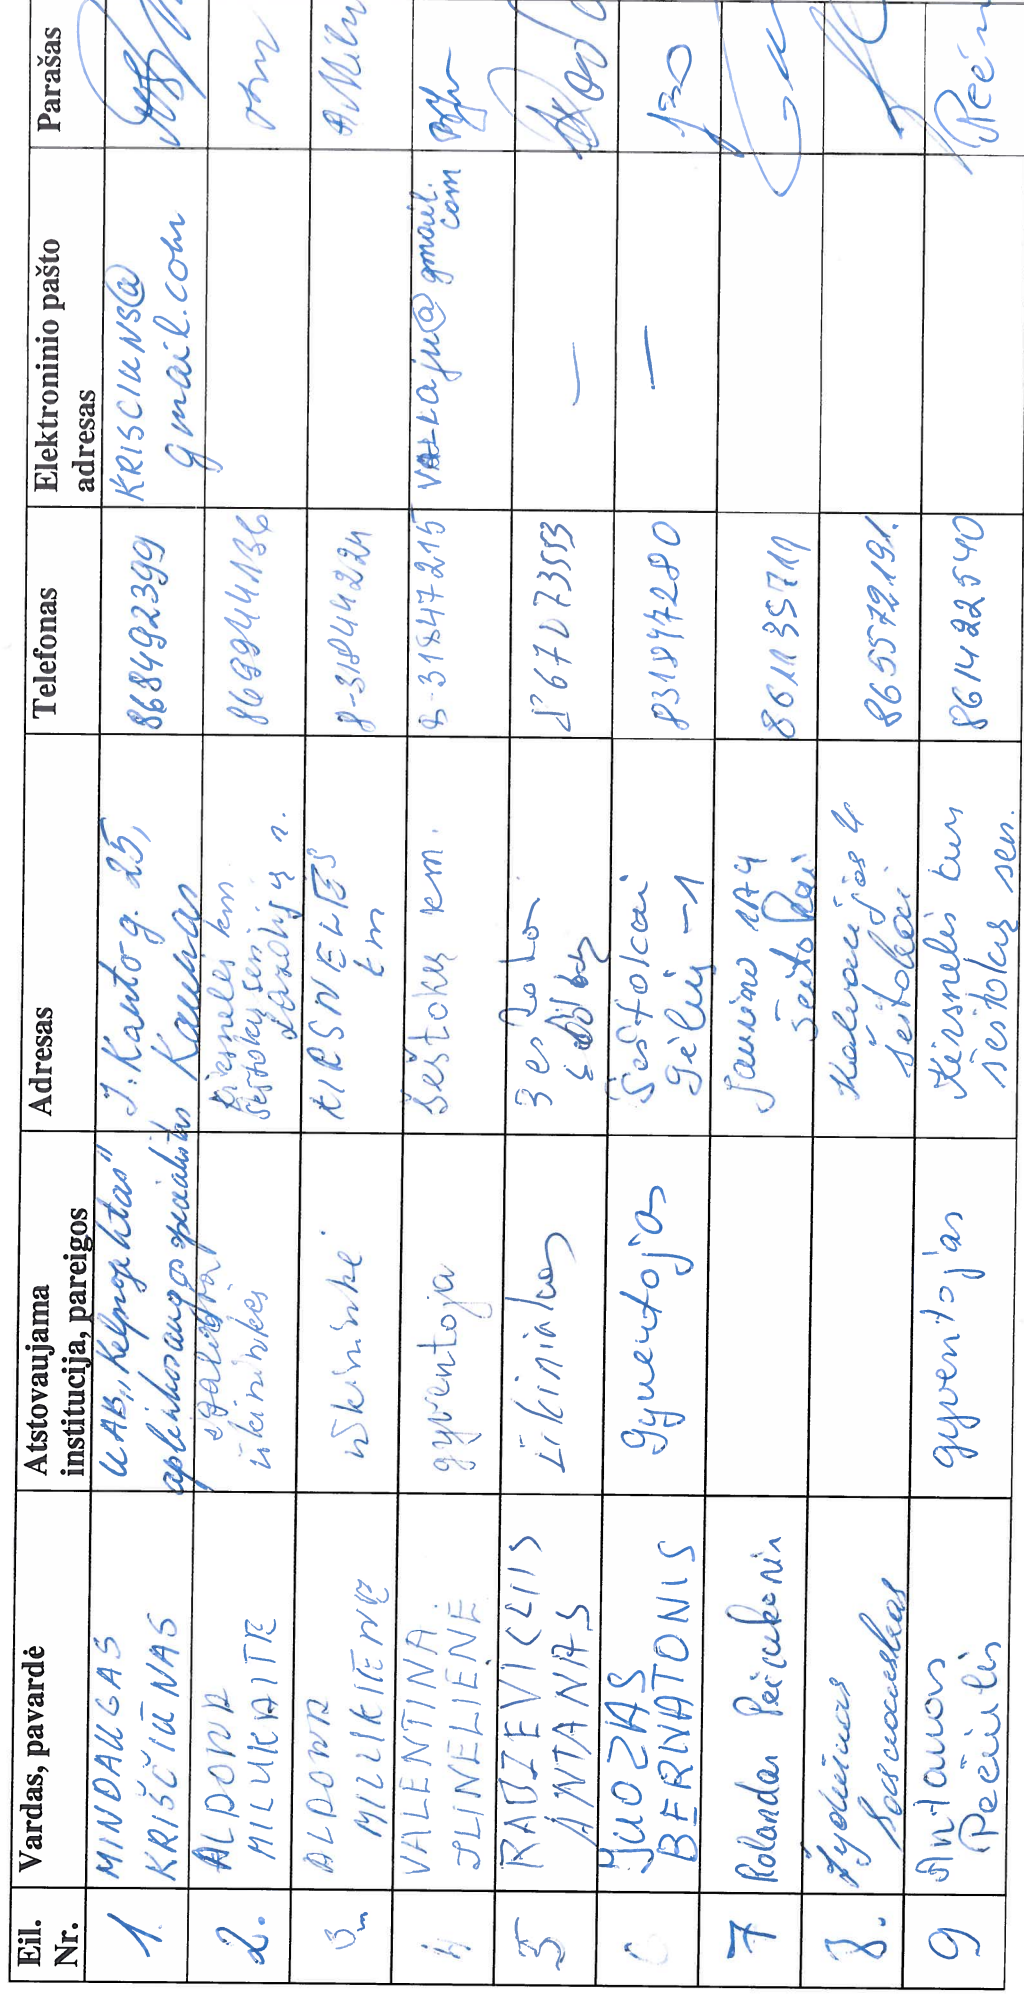 Eil. Nr.
Vardas, pavardė
Atstovaujama institucija, pareigos
Adresas
Telefonas
Elektroninio pašto adresas
Parašas
1.
MINDAUGAS
KRIŠČIŪNAS
UAB „Kelprojektas"
aplinkosaugos specialistas
I. Kanto g. 25,
Kaunas
868492399
KRISCIUNS@
gmail.com
2.
ALDONA
MILUKAITE
ūkininkės
km
Šeštokų sen
Lazdijų r.
869944136
3
ALDONA
MILIKIENĖ
ūkininkė
KIRSNELĖS
km
8-31844224
4
VALENTINA
JLINELIENĖ
gyventoja
Šeštokų km.
8-31847215
gmail.
com
5
RADZEVIČIUS
ANTANAS
Ūkininkas
867073553
—
JUOZAS
BERNATONIS
Gyventojas
Šeštokai
Gėlių -1
831847280
—
7
Rolandas
Jaunimo 1A 4
Šeštokai
861135719
8.
Kalvarijos 4
Šeštokai
865572191.
9
Antanas
Pečiulis
gyventojas
Kirsnelės km
Šeštokų sen.
861422540